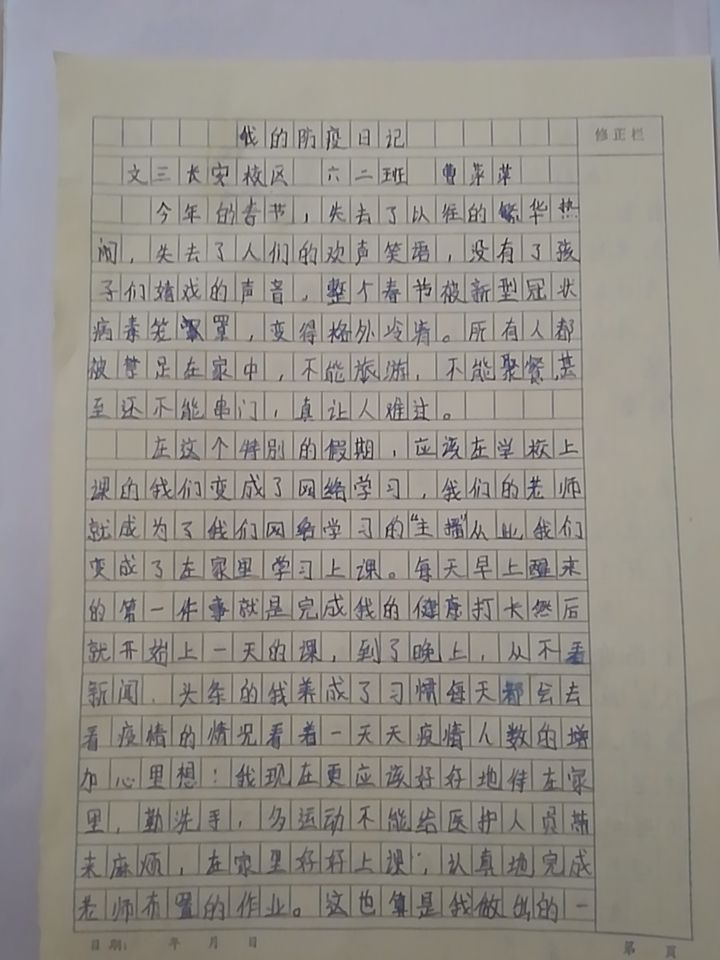 我的防疫日记
修正栏
文三长安校区 六二班 曹苹苹
今年的春节，失去了以往的繁华热
闹，失去了人们的欢声笑语，没有了孩
子们嬉戏的声音，整个春节被新型冠状
病毒笼罩，变得格外冷清。所有人都
被禁足在家中，不能旅游，不能聚餐，甚
至还不能串门，真让人难过。
在这个特别的假期，应该在学校上
课的我们变成了网络学习，我们的老师
就成为了我们网络学习的“主播”从此我们
变成了在家里学习上课。每天早上醒来
的第一件事就是完成我的健康打卡然后
就开始上一天的课，到了晚上，从不看
新闻，头条的我养成了习惯每天都会去
看疫情的情况看着一天天疫情人数的增
加心里想：我现在更应该好好地待在家
里，勤洗手，多运动不能给医护人员带
来麻烦，在家里好好上课，认真地完成
老师布置的作业。这也算是我做出的一
日期： 年 月 日
第 頁